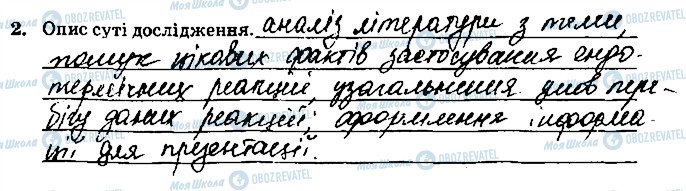 2. Опис суті дослідження. аналіз літератури з теми,
пошук цікавих фактів застосування ендо-
термічних реакцій, узагальнення умов пере-
бігу даних реакцій, оформлення інформа-
ції для презентації.